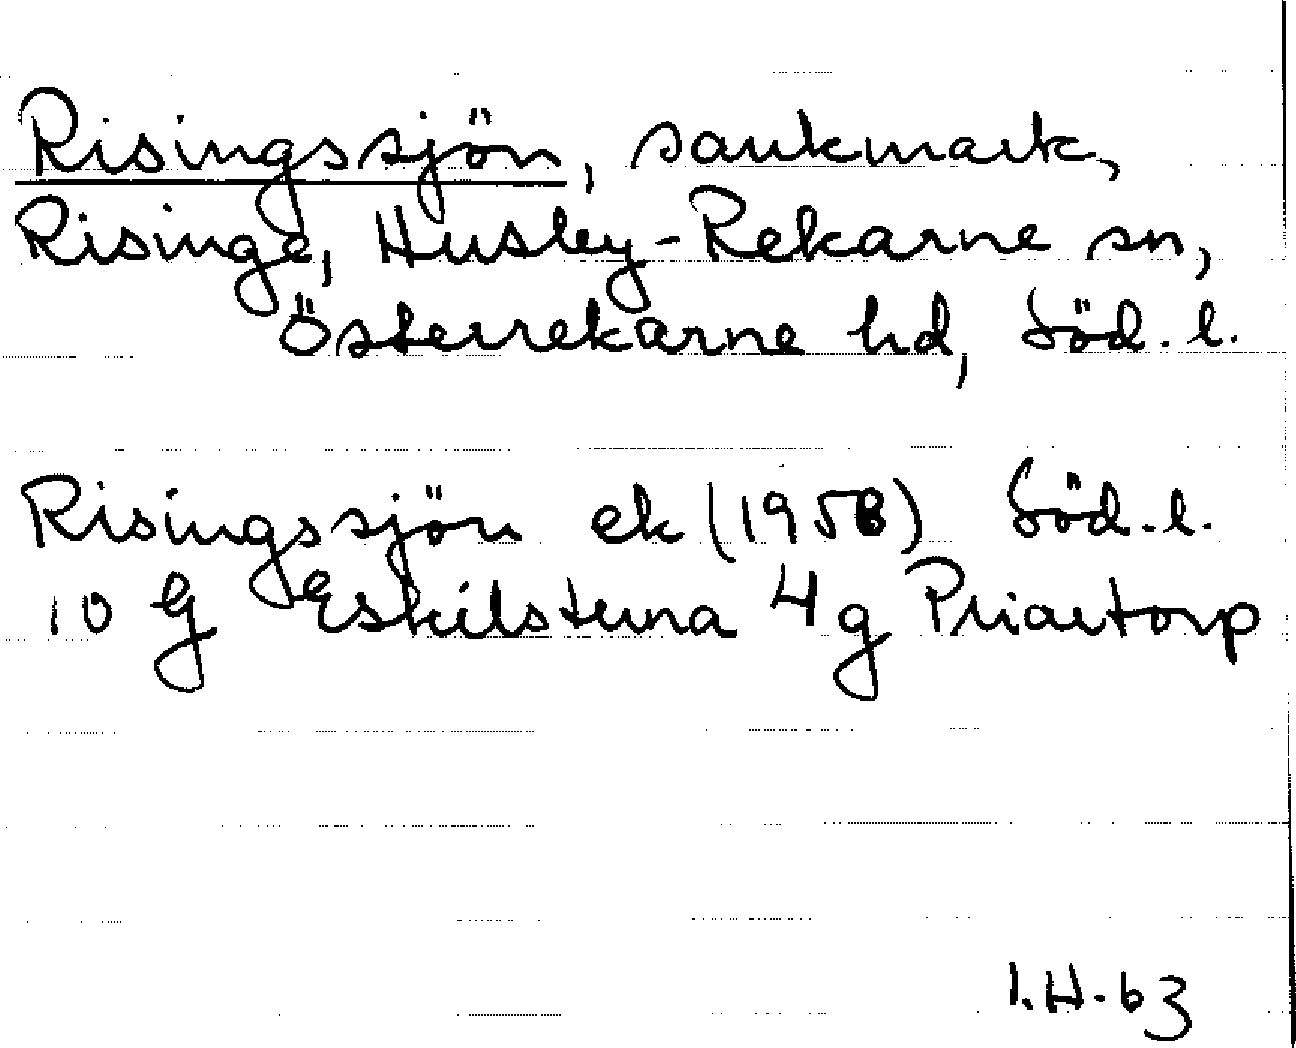 Risingssjön, sankmark,
Risinge, Husby-Rekarne sn,
Österrekarne hd, Söd. l.
Risingssjön ek (1958) Söd. l.
10 G Eskilstuna 4 g Priartorp
I.H-63